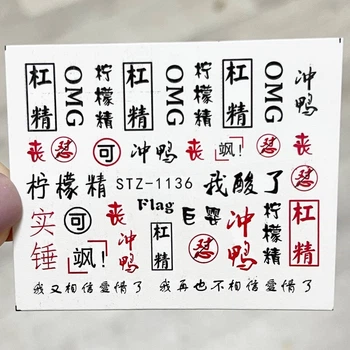 杠精 OMG 柠檬精 杠精 OMG 柠檬精 杠精 OMG 冲鸭
丧 怼 可 冲鸭 丧 飒! 怼 丧
柠檬精 STZ-1136 我酸了 怼
实锤 可 丧 Flag 巨婴 冲鸭 柠檬精 杠精
飒! 冲鸭 杠精 怼
我又相信爱情了 我再也不相信爱情了